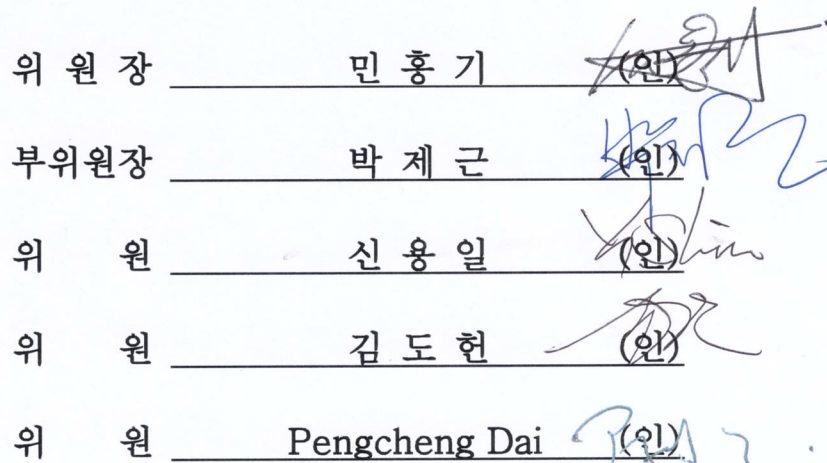 위 원 장 민 홍 기 (인)
부위원장 박 제 근 (인)
위 원 신 용 일 (인)
위 원 김 도 헌 (인)
위 원 Pengcheng Dai (인)